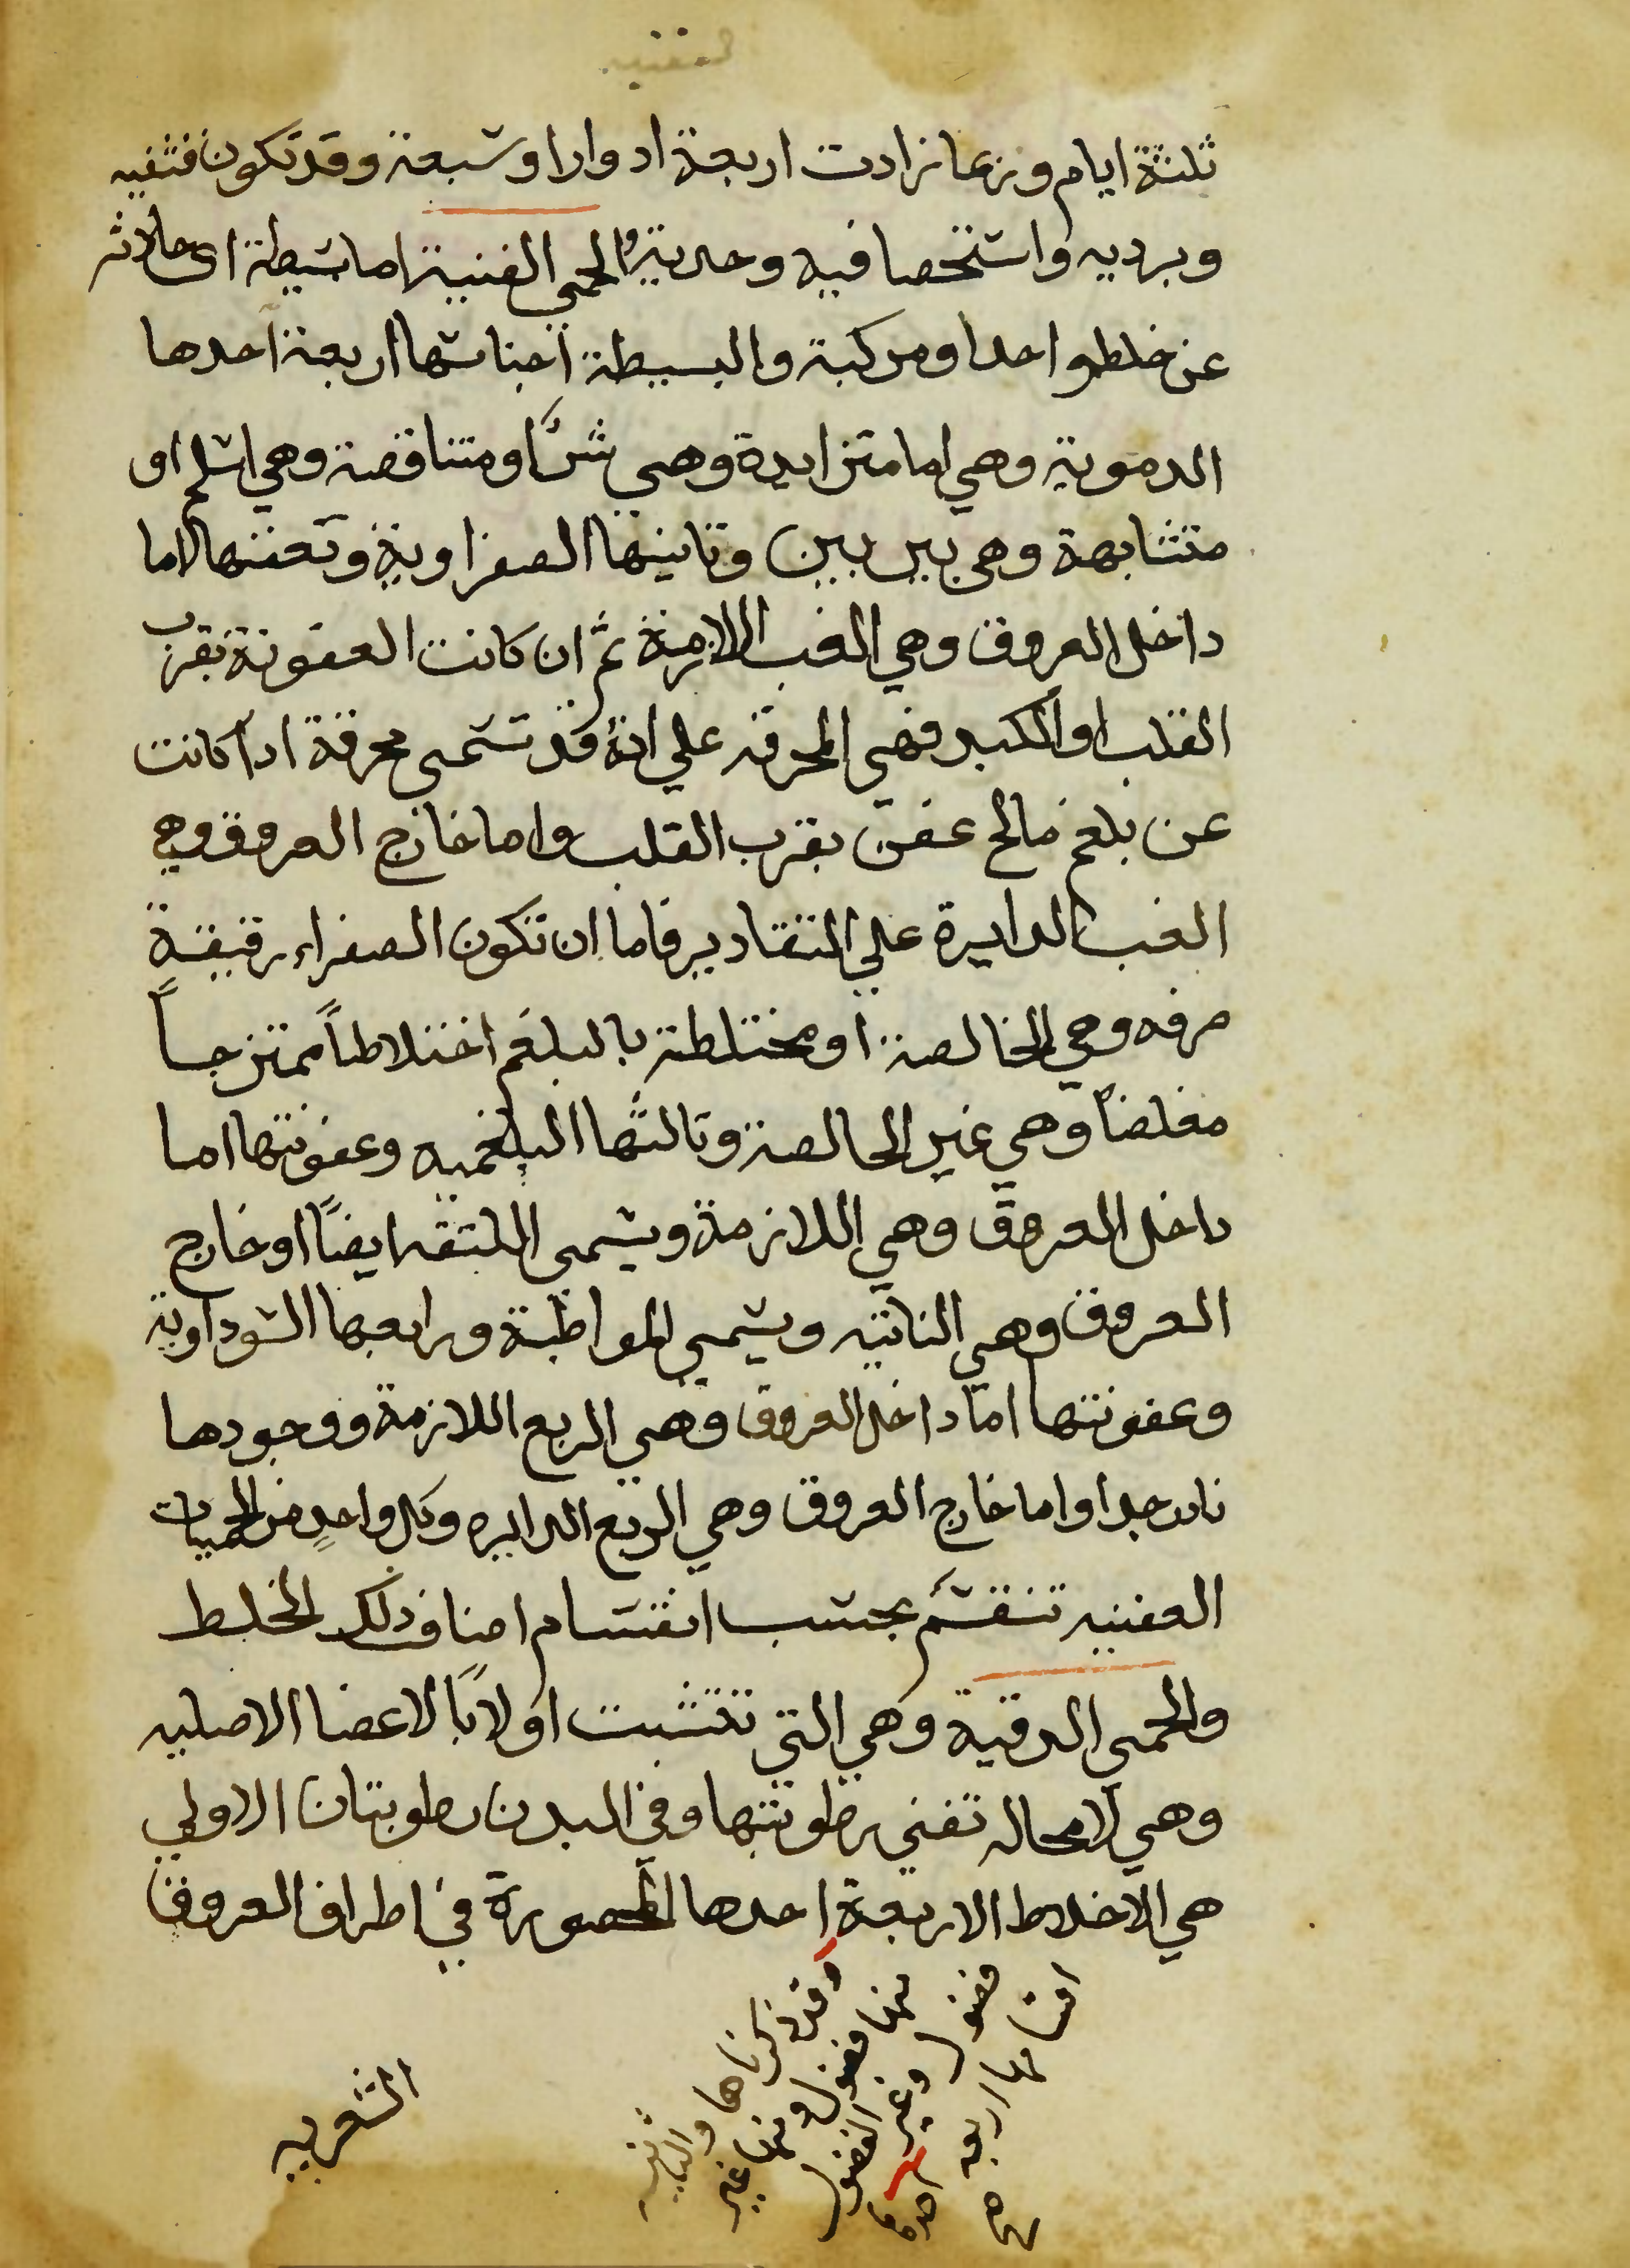 ثلثة ايام وربما زادت اربعة ادوار او سبعة وقد تكون قشفيه
وبرديه واستحصافيه وحربية والحمى العفنية اما بسيطة اى حادثه
عن خلط واحد او مركبة والبسيطة اجناسها اربعة احدها
الدموية وهي اما متزايدة وهي شر او متناقصة وهي اسلم او
متشابهة وهي بين بين وثانيها الصفراوية وتعفنها اما
داخل العروق وهي الغب اللازمة ثم ان كانت العفونة بقرب
القلب او الكبد فهي المحرقه علي انه قد تسمى محرقة اذا كانت
عن بلغم مالح عفن بقرب القلب واما خارج العروق وهي
الغب الدايرة علي التقادير فاما ان تكون الصفراء رقيقة
صرفه وهي الخالصة او مختلطة بالبلغم اختلاطاً ممتزجاً
مغلضاً وهي غير الخالصة وثالثها البلغميه وعفونتها اما
داخل العروق وهي اللازمة ويسمى اللثقه ايضاً او خارج
العروق وهي النائبه ويسمي المواظبة ورابعها السوداوية
وعفونتها اما داخل العروق وهي الربع اللازمة ووجودها
نادر جدا واما خارج العروق وهي الربع الدايره وكل واحدٍ من الحميات
العفنيه تنقسم بحسب انقسام اصناف ذلك الخلط
والحمى الدقية وهي التي تتشبت اولاً بالاعضا الاصليه
وهي لا محاله تفني رطوبتها وفي البدن رطوبتان الاولي
هي الاخلاط الاربعة احدها المحصورة في اطراف العروق
وقد ذكرناها والثانيه
منها فضول ومنها غير
فضول وغير الفضول
اقسامها اربعه احدها هي
الشعريه